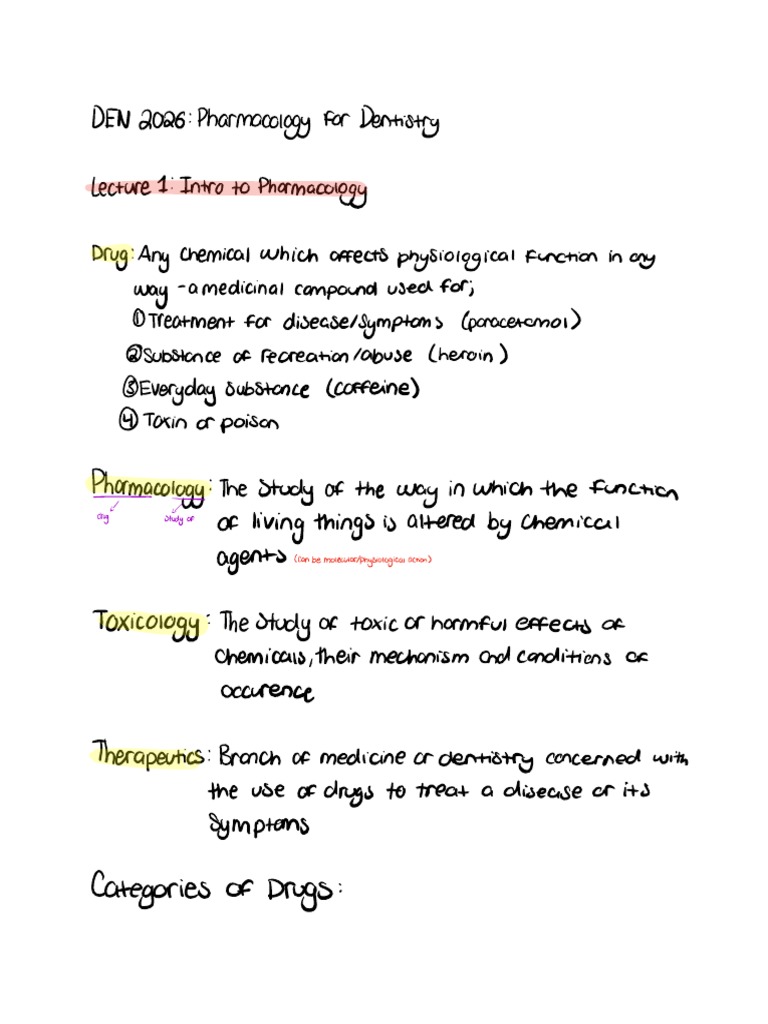 DEN 2026: Pharmacology for Dentistry
Lecture 1: Intro to Pharmacology
Drug: Any chemical which affects physiological function in any
way - a medicinal compound used for;
① Treatment for disease/symptoms (paracetamol)
② Substance of recreation/abuse (heroin)
③ Everyday substance (caffeine)
④ Toxin or poison
Pharmacology: The study of the way in which the function
study of
of living things is altered by chemical
agents (can be molecular/physiological action)
Toxicology: The study of toxic or harmful effects of
chemicals, their mechanism and conditions of
occurence
Therapeutics: Branch of medicine or dentistry concerned with
the use of drugs to treat a disease or its
symptoms
Categories of Drugs: